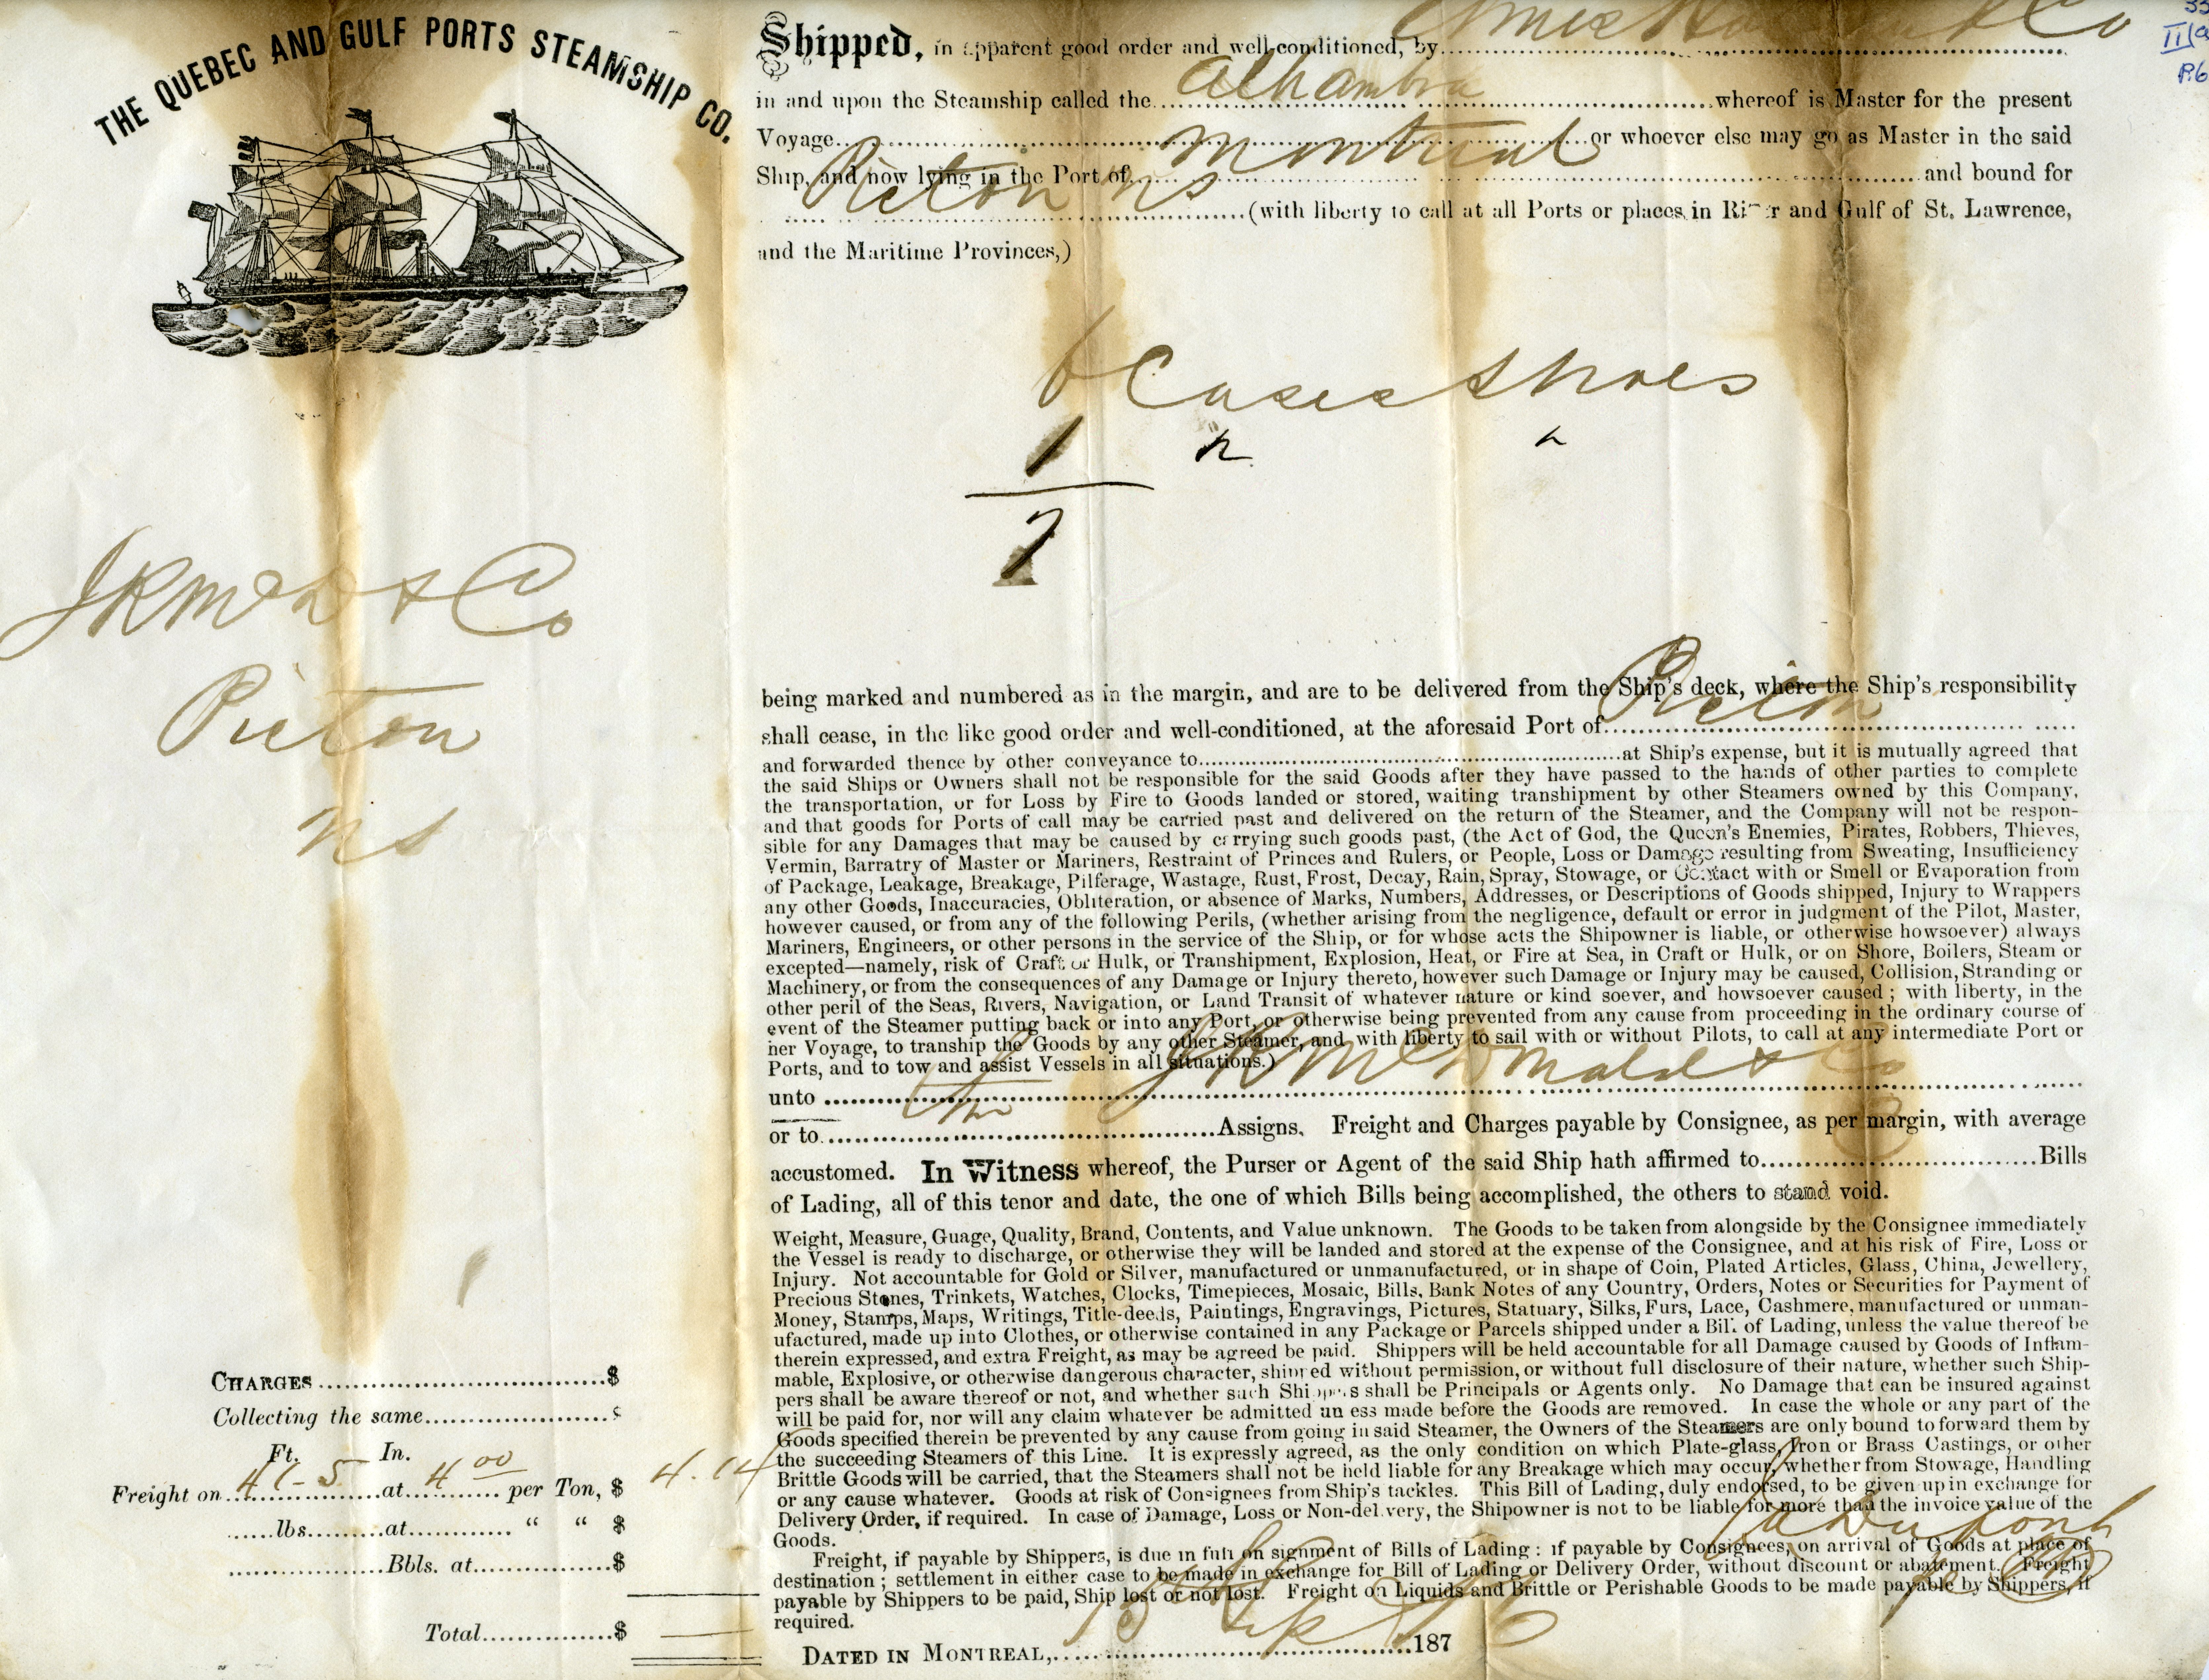 THE QUEBEC AND GULF PORTS STEAMSHIP CO.
33
II
P.6
Shipped, in apparent good order and well-conditioned, by Ames & Co
in and upon the Steamship called the Alhambra whereof is Master for the present
Voyage or whoever else may go as Master in the said
Ship, and now lying in the Port of Montreal and bound for
Picton NS (with liberty to call at all Ports or places in River and Gulf of St. Lawrence,
and the Maritime Provinces,)
6 Cases Shoes
1
7
JRMcD & Co
Picton
NS
being marked and numbered as in the margin, and are to be delivered from the Ship's deck, where the Ship's responsibility
shall cease, in the like good order and well-conditioned, at the aforesaid Port of Picton
and forwarded thence by other conveyance to at Ship's expense, but it is mutually agreed that
the said Ships or Owners shall not be responsible for the said Goods after they have passed to the hands of other parties to complete
the transportation, or for Loss by Fire to Goods landed or stored, waiting transhipment by other Steamers owned by this Company,
and that goods for Ports of call may be carried past and delivered on the return of the Steamer, and the Company will not be respon-
sible for any Damages that may be caused by carrying such goods past, (the Act of God, the Queen's Enemies, Pirates, Robbers, Thieves,
Vermin, Barratry of Master or Mariners, Restraint of Princes and Rulers, or People, Loss or Damage resulting from Sweating, Insufficiency
of Package, Leakage, Breakage, Pilferage, Wastage, Rust, Frost, Decay, Rain, Spray, Stowage, or Contact with or Smell or Evaporation from
any other Goods, Inaccuracies, Obliteration, or absence of Marks, Numbers, Addresses, or Descriptions of Goods shipped, Injury to Wrappers
however caused, or from any of the following Perils, (whether arising from the negligence, default or error in judgment of the Pilot, Master,
Mariners, Engineers, or other persons in the service of the Ship, or for whose acts the Shipowner is liable, or otherwise howsoever) always
excepted—namely, risk of Craft or Hulk, or Transhipment, Explosion, Heat, or Fire at Sea, in Craft or Hulk, or on Shore, Boilers, Steam or
Machinery, or from the consequences of any Damage or Injury thereto, however such Damage or Injury may be caused, Collision, Stranding or
other peril of the Seas, Rivers, Navigation, or Land Transit of whatever nature or kind soever, and howsoever caused ; with liberty, in the
event of the Steamer putting back or into any Port, or otherwise being prevented from any cause from proceeding in the ordinary course of
her Voyage, to tranship the Goods by any other Steamer, and with liberty to sail with or without Pilots, to call at any intermediate Port or
Ports, and to tow and assist Vessels in all situations.)
unto JR McDonald & Co
or to Assigns. Freight and Charges payable by Consignee, as per margin, with average
accustomed. In Witness whereof, the Purser or Agent of the said Ship hath affirmed to Bills
of Lading, all of this tenor and date, the one of which Bills being accomplished, the others to stand void.
Weight, Measure, Guage, Quality, Brand, Contents, and Value unknown. The Goods to be taken from alongside by the Consignee immediately
the Vessel is ready to discharge, or otherwise they will be landed and stored at the expense of the Consignee, and at his risk of Fire, Loss or
Injury. Not accountable for Gold or Silver, manufactured or unmanufactured, or in shape of Coin, Plated Articles, Glass, China, Jewellery,
Precious Stones, Trinkets, Watches, Clocks, Timepieces, Mosaic, Bills, Bank Notes of any Country, Orders, Notes or Securities for Payment of
Money, Stamps, Maps, Writings, Title-deeds, Paintings, Engravings, Pictures, Statuary, Silks, Furs, Lace, Cashmere, manufactured or unman-
ufactured, made up into Clothes, or otherwise contained in any Package or Parcels shipped under a Bill of Lading, unless the value thereof be
therein expressed, and extra Freight, as may be agreed be paid. Shippers will be held accountable for all Damage caused by Goods of Inflam-
mable, Explosive, or otherwise dangerous character, shipped without permission, or without full disclosure of their nature, whether such Ship-
pers shall be aware thereof or not, and whether such Shippers shall be Principals or Agents only. No Damage that can be insured against
will be paid for, nor will any claim whatever be admitted unless made before the Goods are removed. In case the whole or any part of the
Goods specified therein be prevented by any cause from going in said Steamer, the Owners of the Steamers are only bound to forward them by
the succeeding Steamers of this Line. It is expressly agreed, as the only condition on which Plate-glass, Iron or Brass Castings, or other
Brittle Goods will be carried, that the Steamers shall not be held liable for any Breakage which may occur, whether from Stowage, Handling
or any cause whatever. Goods at risk of Consignees from Ship's tackles. This Bill of Lading, duly endorsed, to be given up in exchange for
Delivery Order, if required. In case of Damage, Loss or Non-delivery, the Shipowner is not to be liable for more than the invoice value of the
Goods.
Freight, if payable by Shippers, is due in full on signment of Bills of Lading : if payable by Consignees, on arrival of Goods at place of
destination ; settlement in either case to be made in exchange for Bill of Lading or Delivery Order, without discount or abatement. Freight
payable by Shippers to be paid, Ship lost or not lost. Freight on Liquids and Brittle or Perishable Goods to be made payable by Shippers, if
required.
DATED IN MONTREAL, 187
CHARGES $
Collecting the same $
Ft. In.
Freight on 41-5 at 4 00 per Ton, $ 4.14
lbs. at “ “ $
Bbls. at $
Total $